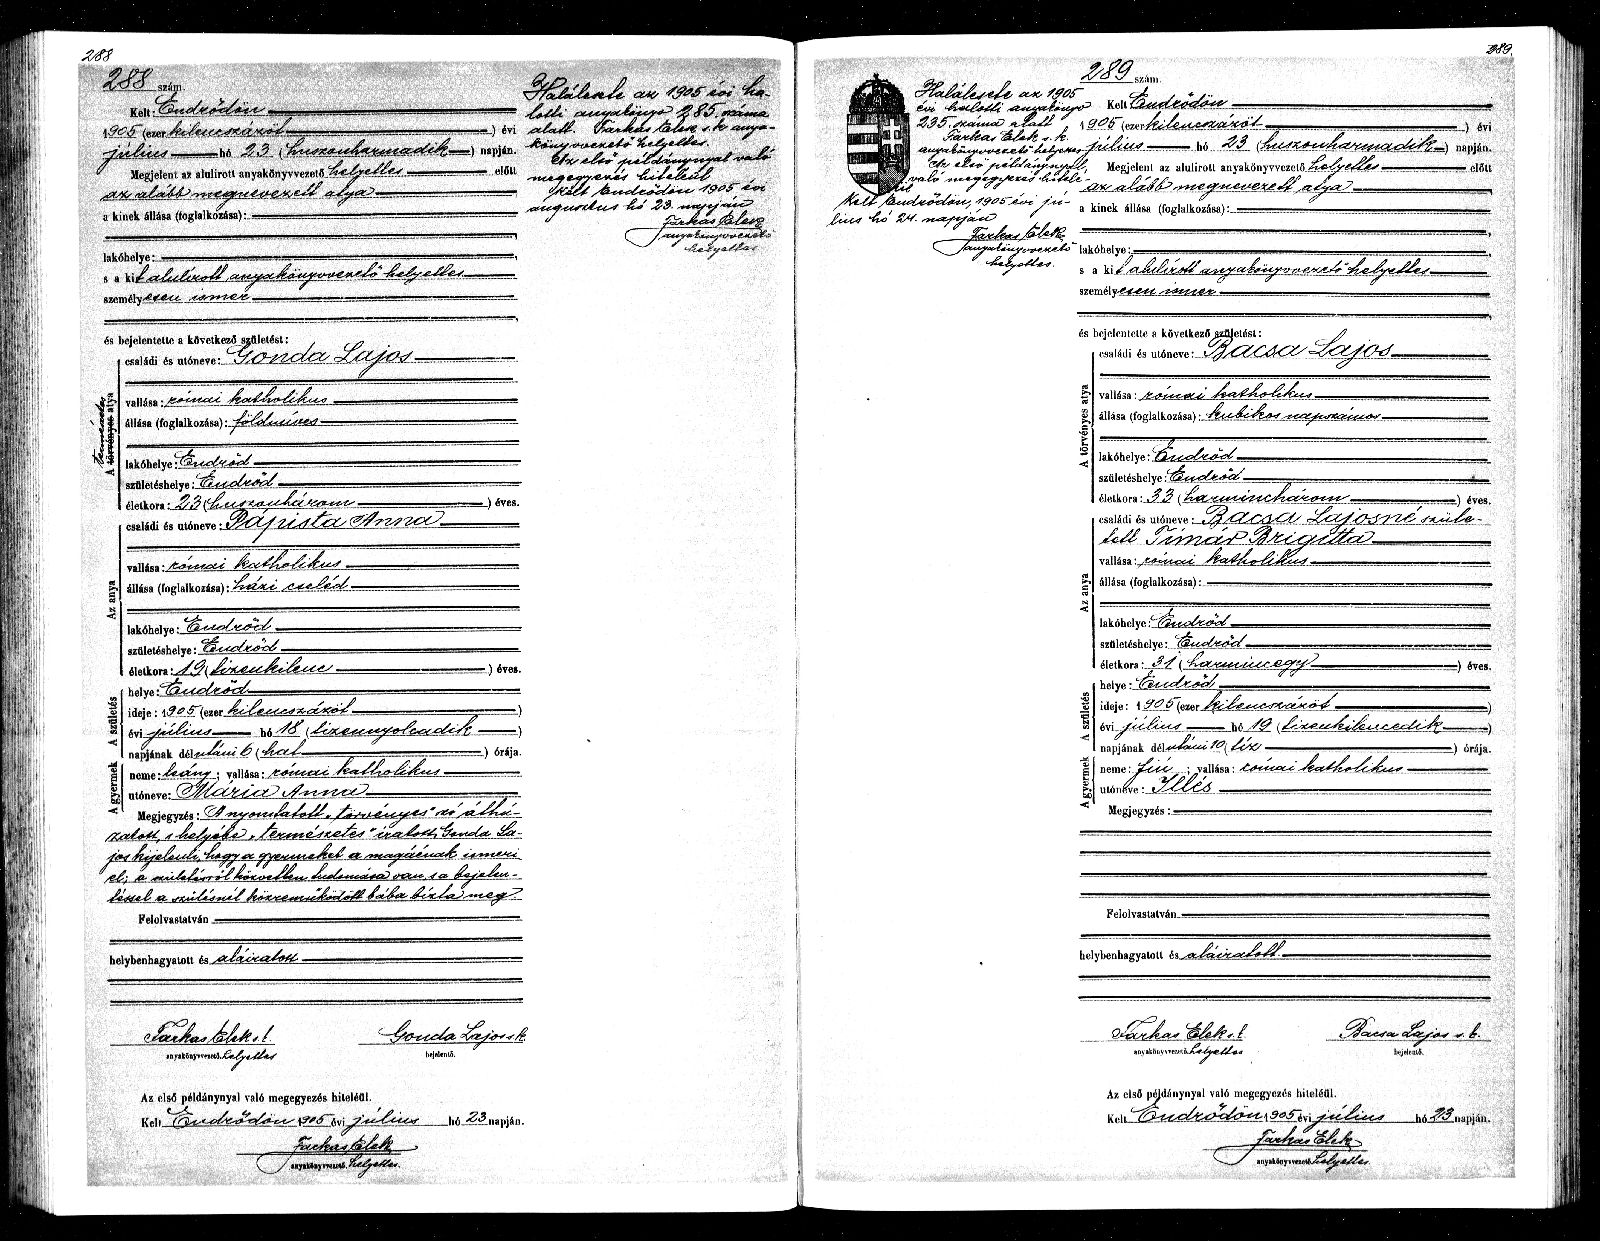 288
288 szám.
Kelt: Endrődön
1905 (ezerkilenczázöt) évi
július hó 23 (huszonharmadik) napján.
Megjelent az alulirott anyakönyvvezető helyettes előtt
az alább megnevezett atya
a kinek állása (foglalkozása):
lakóhelye:
s a kit alulírott anyakönyvvezető helyettes
személyesen ismer
és bejelentette a következő születést:
A törvényes atya
természetes
családi és utóneve: Gonda Lajos
vallása: római katholikus
állása (foglalkozása): földmíves
lakóhelye: Endrőd
születéshelye: Endrőd
életkora: 23 (huszonhárom) éves.
Az anya
családi és utóneve: Pápista Anna
vallása: római katholikus
állása (foglalkozása): házi cseléd
lakóhelye: Endrőd
születéshelye: Endrőd
életkora: 19 (tizenkilenc) éves.
A születés
helye: Endrőd
ideje: 1905 (ezerkilenczázöt)
évi július hó 18 (tizennyolcadik)
napjának délutáni 6 (hat) órája.
A gyermek
neme: leány; vallása: római katholikus
utóneve: Mária Anna
Megjegyzés: A nyomtatott „törvényes" szó áthú-
zatott, s helyébe „természetes" iratott, Gonda La-
jos kijelenti, hogy a gyermeket a magáénak ismeri
el; a születésről közvetlen tudomása van s a bejelen-
téssel a szülésnél közreműködött bába bízta meg.
Felolvastatván
helybenhagyatott és aláiratott
Farkas Elek s.k. Gonda Lajos s.k.
anyakönyvvezető helyettes bejelentő.
Az első példánynyal való megegyezés hiteléül.
Kelt Endrődön 1905 évi július hó 23 napján.
Farkas Elek
anyakönyvvezető helyettes.
Halálesete az 1905 évi ha-
lotti anyakönyv 285. száma
alatt. Farkas Elek s.k. anya-
könyvvezető helyettes.
Az első példánynyal való
megegyezés hiteléül
Kelt Endrődön 1905 évi
augusztus hó 23. napján
Farkas Elek
anyakönyvvezető
helyettes
289
Halálesete az 1905
évi halotti anyakönyv
235. száma alatt
Farkas Elek s.k.
anyakönyvvezető helyettes
Az első példánynyal
való megegyezés hitelé-
ül
Kelt Endrődön, 1905 évi jú-
lius hó 24. napján
Farkas Elek
anyakönyvvezető
helyettes.
289 szám.
Kelt: Endrődön
1905 (ezerkilenczázöt) évi
július hó 23 (huszonharmadik) napján.
Megjelent az alulirott anyakönyvvezető helyettes előtt
az alább megnevezett atya
a kinek állása (foglalkozása):
lakóhelye:
s a kit alulírott anyakönyvvezető helyettes
személyesen ismer
és bejelentette a következő születést:
A törvényes atya
családi és utóneve: Bacsa Lajos
vallása: római katholikus
állása (foglalkozása): kubikos napszámos
lakóhelye: Endrőd
születéshelye: Endrőd
életkora: 33 (harminchárom) éves.
Az anya
családi és utóneve: Bacsa Lajosné szüle-
tett Tímár Brigitta
vallása: római katholikus
állása (foglalkozása):
lakóhelye: Endrőd
születéshelye: Endrőd
életkora: 31 (harmincegy) éves.
A születés
helye: Endrőd
ideje: 1905 (ezerkilenczázöt)
évi július hó 19 (tizenkilencedik)
napjának délutáni 10 (tíz) órája.
A gyermek
neme: fiú; vallása: római katholikus
utóneve: Illés
Megjegyzés:
Felolvastatván
helybenhagyatott és aláiratott.
Farkas Elek s.k. Bacsa Lajos s.k.
anyakönyvvezető helyettes bejelentő.
Az első példánynyal való megegyezés hiteléül.
Kelt Endrődön 1905 évi július hó 23 napján.
Farkas Elek
anyakönyvvezető helyettes.